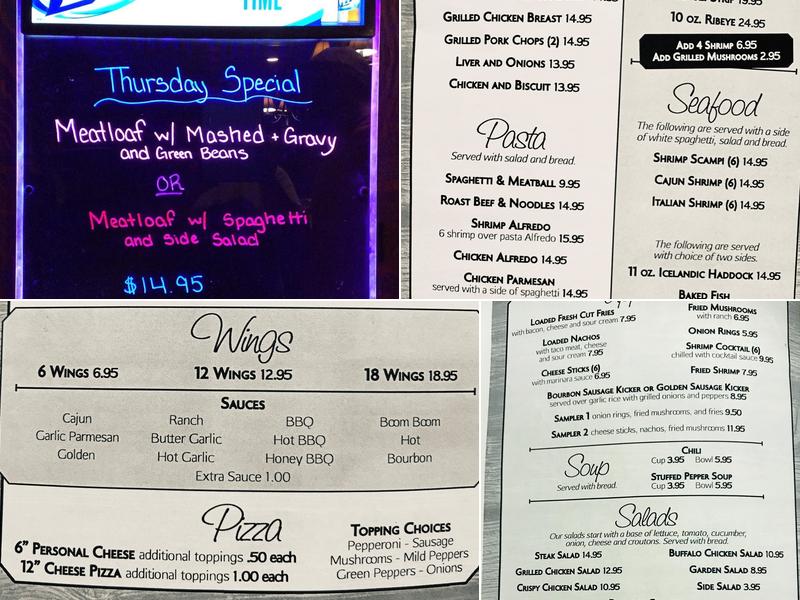 TIME
Thursday Special
Meatloaf w/ Mashed + Gravy
and Green Beans
OR
Meatloaf w/ Spaghetti
and Side Salad
$14.95
GRILLED CHICKEN BREAST 14.95
GRILLED PORK CHOPS (2) 14.95
LIVER AND ONIONS 13.95
CHICKEN AND BISCUIT 13.95
Pasta
Served with salad and bread.
SPAGHETTI & MEATBALL 9.95
ROAST BEEF & NOODLES 14.95
SHRIMP ALFREDO
6 shrimp over pasta Alfredo 15.95
CHICKEN ALFREDO 14.95
CHICKEN PARMESAN
served with a side of spaghetti 14.95
10 OZ. RIBEYE 24.95
ADD 4 SHRIMP 6.95
ADD GRILLED MUSHROOMS 2.95
Seafood
The following are served with a side
of white spaghetti, salad and bread.
SHRIMP SCAMPI (6) 14.95
CAJUN SHRIMP (6) 14.95
ITALIAN SHRIMP (6) 14.95
The following are served
with choice of two sides.
11 OZ. ICELANDIC HADDOCK 14.95
BAKED FISH
Wings
6 WINGS 6.95 12 WINGS 12.95 18 WINGS 18.95
SAUCES
Cajun Ranch BBQ Boom Boom
Garlic Parmesan Butter Garlic Hot BBQ Hot
Golden Hot Garlic Honey BBQ Bourbon
Extra Sauce 1.00
Pizza
6" PERSONAL CHEESE additional toppings .50 each
12" CHEESE PIZZA additional toppings 1.00 each
TOPPING CHOICES
Pepperoni - Sausage
Mushrooms - Mild Peppers
Green Peppers - Onions
LOADED FRESH CUT FRIES
with bacon, cheese and sour cream 7.95
LOADED NACHOS
with taco meat, cheese
and sour cream 7.95
CHEESE STICKS (6)
with marinara sauce 6.95
FRIED MUSHROOMS
with ranch 6.95
ONION RINGS 5.95
SHRIMP COCKTAIL (6)
chilled with cocktail sauce 9.95
FRIED SHRIMP 7.95
BOURBON SAUSAGE KICKER OR GOLDEN SAUSAGE KICKER
served over garlic rice with grilled onions and peppers 8.95
SAMPLER 1 onion rings, fried mushrooms, and fries 9.50
SAMPLER 2 cheese sticks, nachos, fried mushrooms 11.95
Soup
Served with bread.
CHILI
Cup 3.95 Bowl 5.95
STUFFED PEPPER SOUP
Cup 3.95 Bowl 5.95
Salads
Our salads start with a base of lettuce, tomato, cucumber,
onion, cheese and croutons. Served with bread.
STEAK SALAD 14.95 BUFFALO CHICKEN SALAD 10.95
GRILLED CHICKEN SALAD 12.95 GARDEN SALAD 8.95
CRISPY CHICKEN SALAD 10.95 SIDE SALAD 3.95